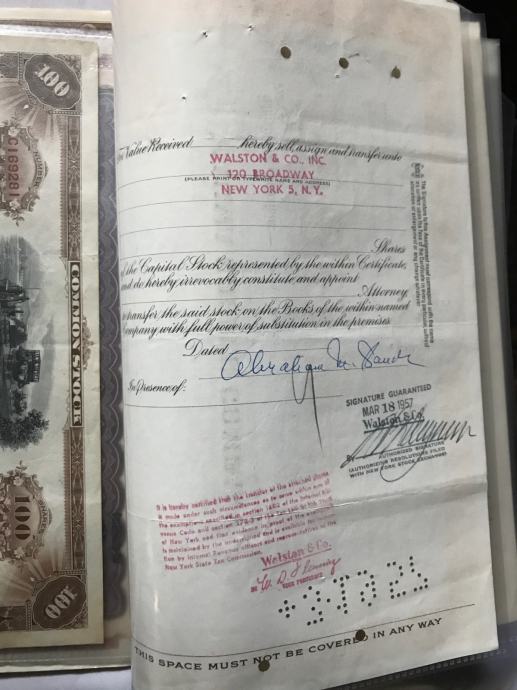 100
C169281
COMMON STOCK
100
100
Value Received hereby sell, assign and transfer unto
WALSTON & CO., INC.
120 BROADWAY
(PLEASE PRINT OR TYPEWRITE NAME AND ADDRESS)
NEW YORK 5, N.Y.
Shares
of the Capital Stock represented by the within Certificate,
and do hereby irrevocably constitute and appoint
Attorney
to transfer the said stock on the Books of the within named
Company with full power of substitution in the premises.
Dated
Abraham M.
In presence of:
SIGNATURE GUARANTEED
MAR 18 1957
Walston & Co.
BY
AUTHORIZED SIGNATURE
(AUTHORIZING RESOLUTIONS FILED
WITH NEW YORK STOCK EXCHANGE)
It is hereby certified that the transfer of the attached shares
is made under such circumstances as to come within one of
the exemptions specified in section of the Internal
Code and section 270 of the Tax Law of the State
of New York and that evidence in proof of the exemption
is maintained by the undersigned and is available for
tion by Internal Revenue officers and representatives of the
New York State Tax Commission.
Walston & Co.
BY W. D. Fleming
VICE PRESIDENT
THIS SPACE MUST NOT BE COVERED IN ANY WAY